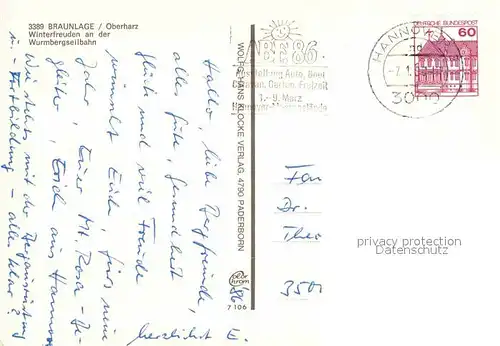 3389 BRAUNLAGE / Oberharz
Winterfreuden an der
Wurmbergseilbahn
Hallo, liebe Bergfreunde,
alles Gute, Gesundheit
Glück und viel Freude
wünscht Euch, fürs neue
Jahr, Euer Mt. Rosa-Be-
gleiter, Erich aus Hannover
Wie steht's mit der Bergausrüstung
u. -Fortbildung - alles klar?
herzlichst E.
/86
WOLFGANG KLOCKE VERLAG, 4790 PADERBORN
7 106
ABF 86
Ausstellung Auto, Boot
Caravan, Garten, Freizeit
1.-9. März
Hannover-Messegelände
HANNOVER
-7.1.
3000
DEUTSCHE BUNDESPOST
60
Dr.
Theo
3501
privacy protection
Datenschutz